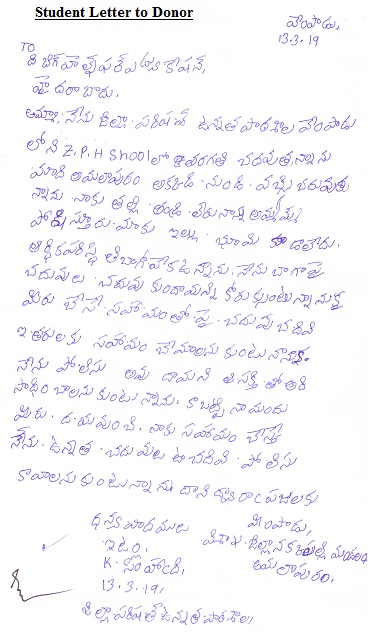 Student Letter to Donor
వేంపాడు,
13.3.19
TO
ది బిగ్ హెల్ప్ ఫర్ ఎడ్యుకేషన్,
హైదరాబాదు.
అమ్మా: నేను జిల్లా. పరిషత్ ఉన్నత పాఠశాల వేంపాడు
లోని Z.P.H Shoolలో తరగతి చదువుతున్నాను
మాది అమలాపురం అక్కడి నుండి. వచ్చి చదువుతు
న్నాను. నాకు తల్లి. తండ్రి లేరు నాన్న అమ్మమ్మ
పోషిస్తారు. మాకు ఇల్లు. భూమి లేదు.
ఆర్థిక పరిస్థితి బాగా లేక ఉన్నాను. నేను బాగా పై
చదువులు. చదువుకుందామని కోరుకుంటున్నాను
మీరు చేసే. సహాయంతో. పై. చదువు చదివి
ఇతరులకు సహాయం చేయాలనుకుంటున్నాను.
నేను పోలీసు అవుదామని ఆసక్తితో
సాధించాలనుకుంటున్నాను. కాబట్టి నాయందు
మీరు. దయుంచి. నాకు సహాయం చేస్తే
నేను. ఉన్నత. చదువులు చదివి. పోలీసు
కావాలనుకుంటున్నాను దాని ద్వారా ప్రజలకు
ధన్యవాదములు
ఇట్లు.
K.
13.3.19,
జిల్లా పరిషత్ ఉన్నత పాఠశాల,
వేంపాడు,
విశాఖ. జిల్లా నక్కపల్లి మండలం
అమలాపురం.